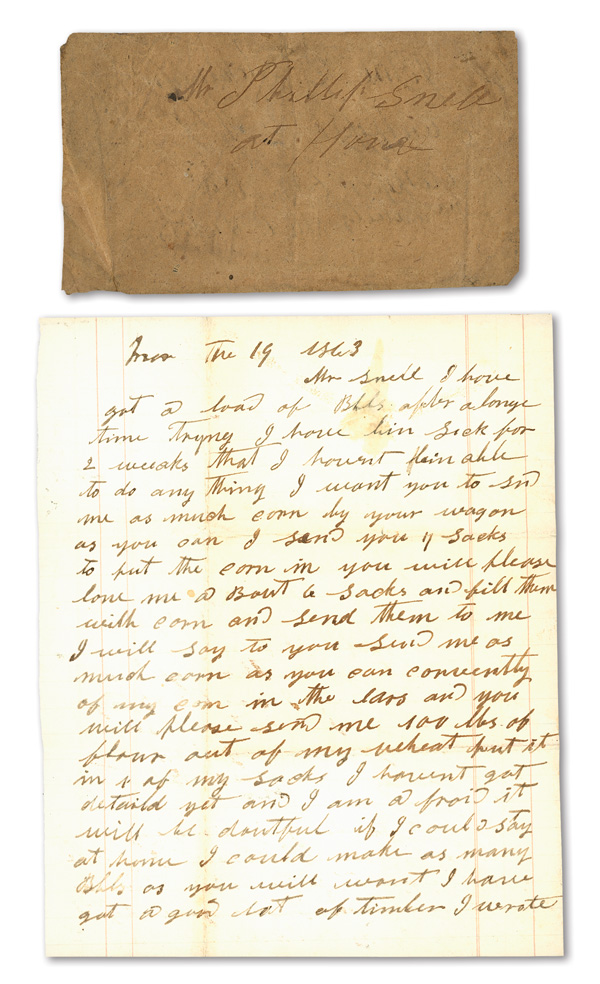 Mr Phillip Snell
at Home
The 19 1863
Mr Snell I have
got a load of Bbls after a longe
time Tryng I have bin sick for
2 weeaks that I havent bein able
to do any thing I want you to sen
me as much corn by your wagon
as you can I send you 4 sacks
to put the corn in you will please
lone me a Bout 6 sacks and fill them
with corn and send them to me
I will say to you send me as
much corn as you can
of my corn in the and you
will please send me 100 lbs of
flour out of my wheat put it
in 1 of my sacks I havent got
detaild yet and I am a fraid it
will be doutful if I could stay
at home I could make as many
Bbls as you will want I have
got a good lot of timber I wrote